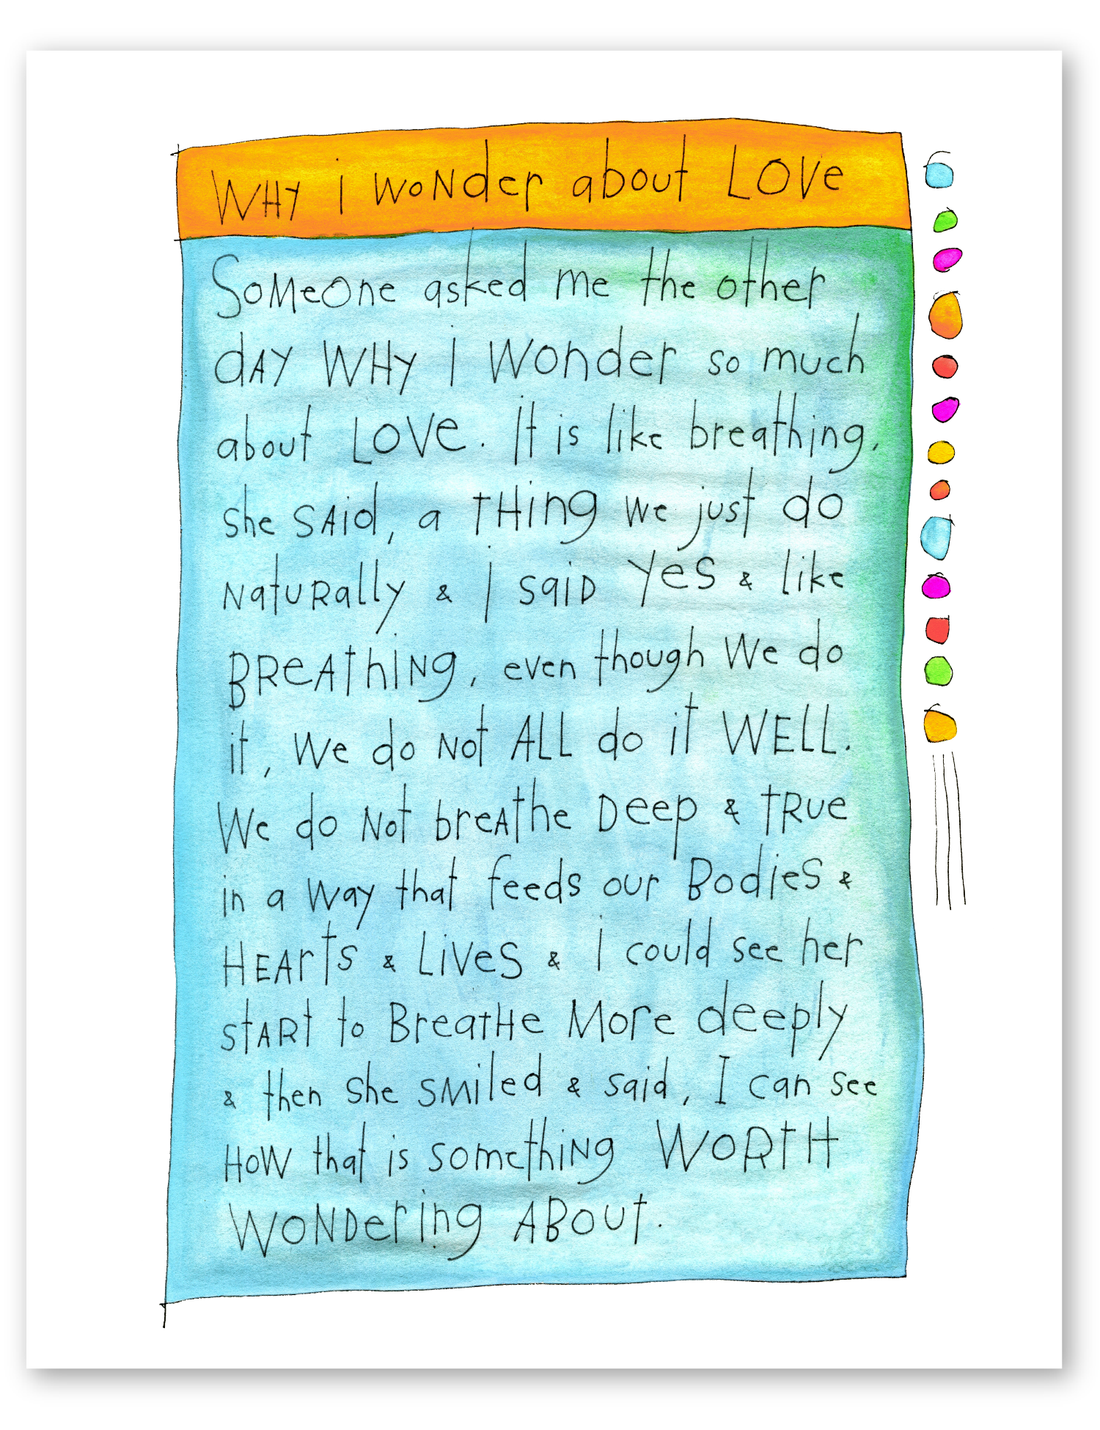 WHY i WoNder about LOVE
SoMeOne asked me the other
dAY WHY I Wonder so much
about LOVe. It is like breathing,
she SAid, a THing we just do
NatuRally & I saiD YeS & like
BReAthiNg, even though We do
it, We do Not ALL do it WELL.
We do Not breAthe Deep & tRue
in a Way that feeds our BodieS &
HEArts & LiVeS & I could see her
stARt to BreatHe More deeply
& then She sMiled & said, I can see
HoW that is somethiNg WoRtH
WoNDering ABout.